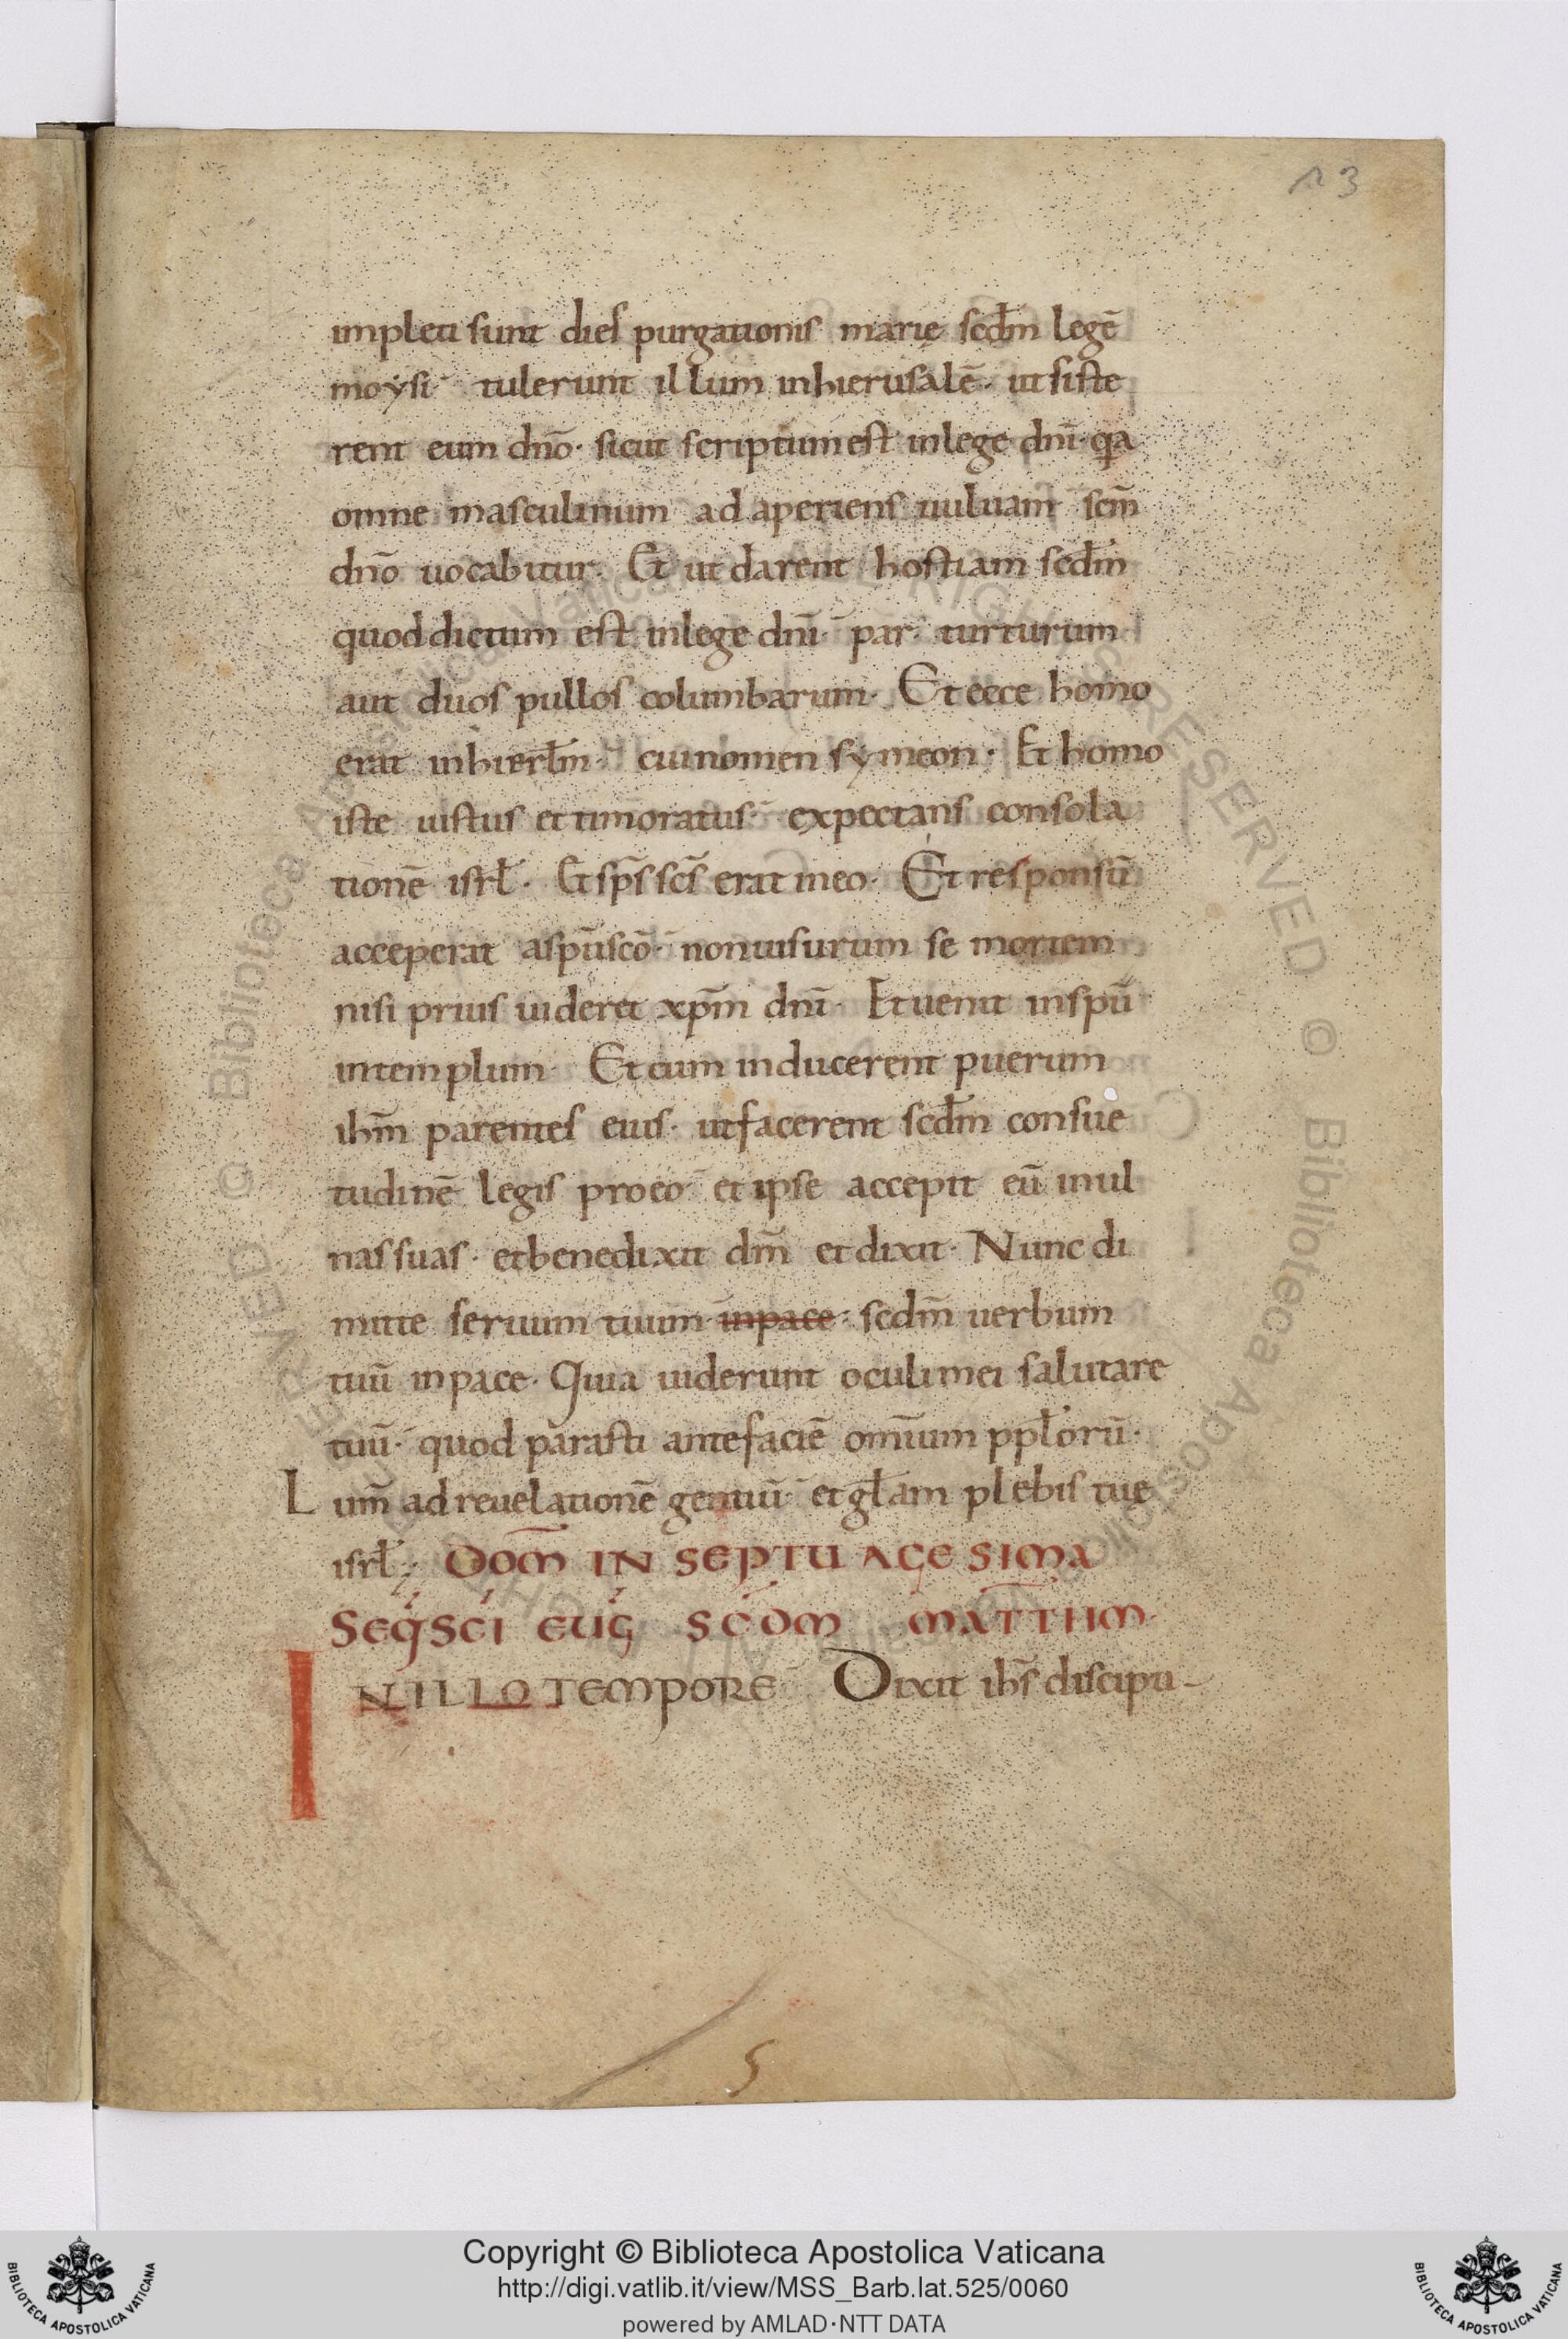 13
impleti sunt dies purgationis marię scdm̄ legē
moysi· tulerunt illum inhierusalē· utsiste
rent eum dnō· sicut scriptum est inlege dnī· qa
omne masculinum adaperiens uuluam scm̄
dnō uocabitur. Et ut darent hostiam scdm̄
quoddictum est inlege dnī· par· turturum
aut duos pullos columbarum· Et ecce homo
erat inhierłm· cuinomen symeon· Et homo
iste iustus et timoratus· expectans consola
tionē isrł· Et sp̄s sc̄s erat ineo· Et responsū
acceperat aspū scō· nonuisurum se mortem
nisi prius uideret xp̄m dnī· Et uenit inspū
intemplum· Et cum inducerent puerum
ihm̄ parentes eius· utfacerent scdm̄ consue
tudinē legis proeo· et ipse accepit eū inul
nas suas· etbenedixit dm̄ et dixit· Nunc di
mitte seruum tuum inpace· scdm̄ uerbum
tuū inpace· Quia uiderunt oculi mei salutare
tuū· quod parasti antefaciē omīum pplorū·
Lum̄ adreuelationē gentiū· et głam plebis tuę
isrł· DOM̄ IN SEPTUAGESIMA
SEQ̇ SC̄I EUḠ SC̄DM MATTHM·
IN ILLO TEMPORE· Dixit ihs̄ discipu-
5
© Biblioteca Apostolica Vaticana ALL RIGHTS RESERVED © Biblioteca Apostolica Vaticana ALL RIGHTS RESERVED
Copyright © Biblioteca Apostolica Vaticana
http://digi.vatlib.it/view/MSS_Barb.lat.525/0060
powered by AMLAD·NTT DATA
BIBLIOTECA APOSTOLICA VATICANA
BIBLIOTECA APOSTOLICA VATICANA